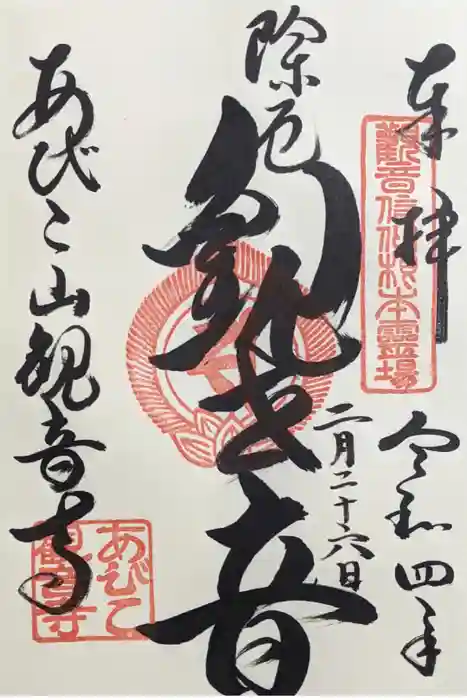 奉拝
観音信仰根本霊場
令和四年
二月二十六日
除厄
観世音
あびこ山観音寺
あびこ
観音寺